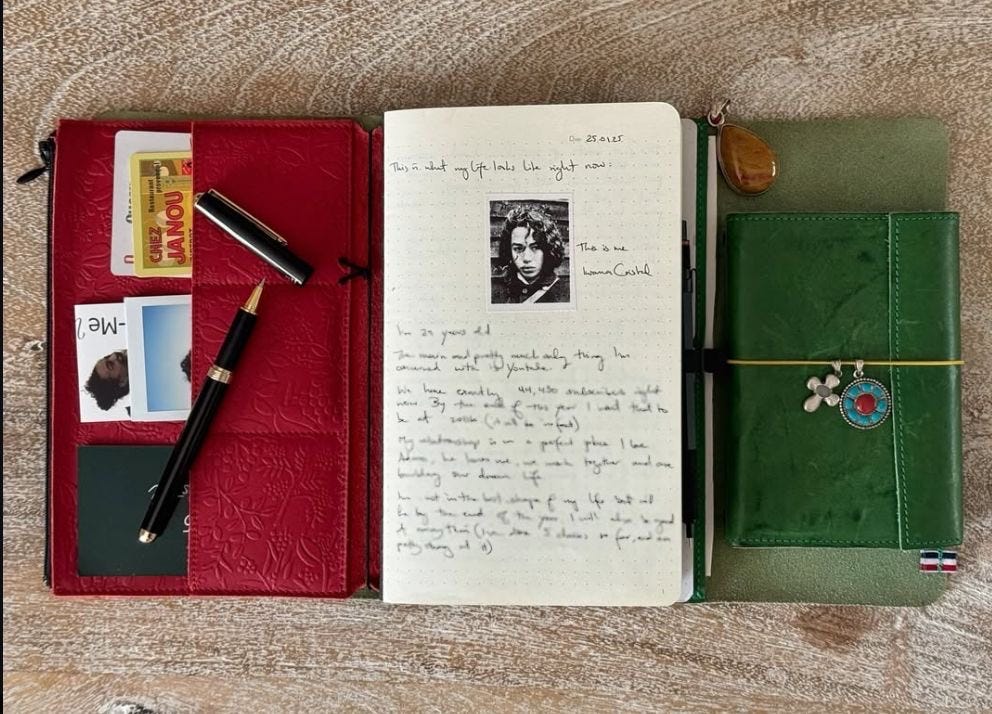 Restaurant provençal
CHEZ
JANOU
-Me?
Date 25.01.25
This is what my life looks like right now:
This is me
Ivana Cristal
I'm 25 years old
The main and pretty much only thing I'm
concerned with is Youtube.
We have exactly 44,450 subscribers right
now. By the end of this year I want that to
be at 200k (it will be in fact)
My relationship is in a perfect place I love
Adam, he loves me, we work together and are
building our dream life
I'm not in the best shape of my life but will
be by the end of the year. I will also be good
at (I've done 5 classes so far, and am
pretty at it)
1